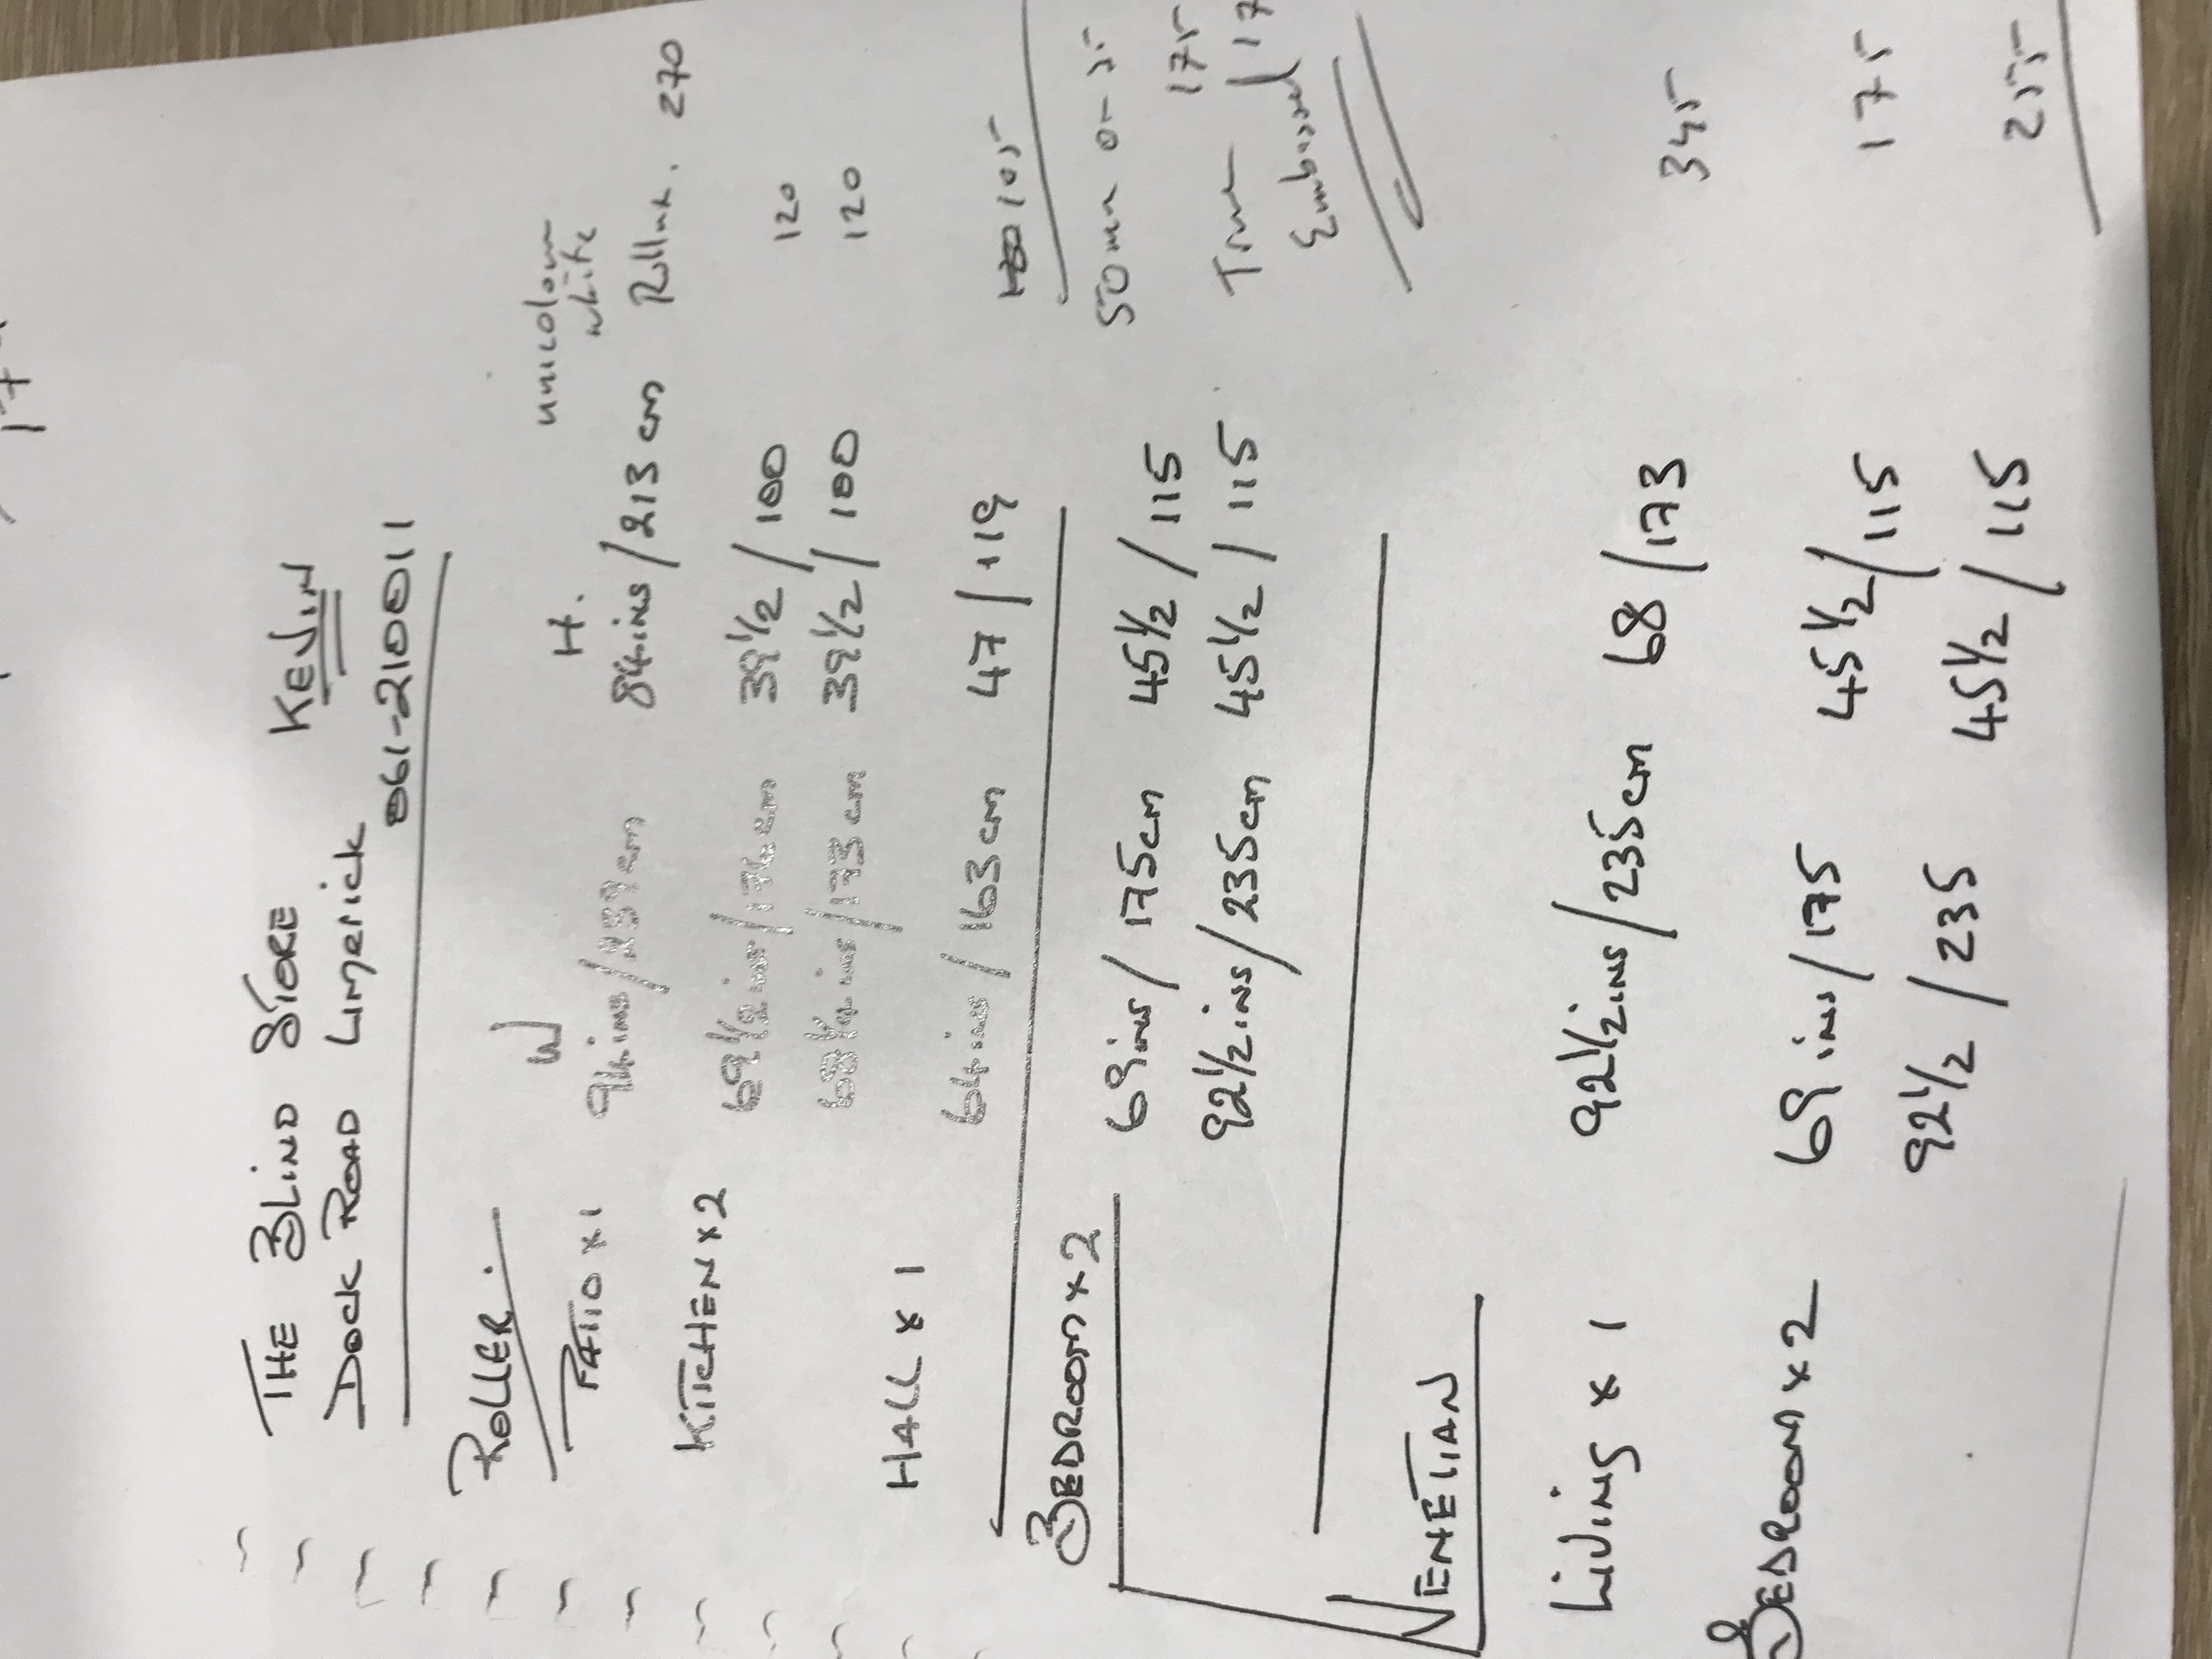 THE BLIND STORE KEVIN
DOCK ROAD LIMERICK
061-210011
ROLLER.
W H. unicolour white
PATIO x 1 94ins/239cm 84ins/213cm Rollux. 270
KITCHEN x 2 69½ins/176cm 39½/100 120
68¼ins/173cm 39½/100 120
HALL x 1 64ins/163cm 47/119 105
BEDROOM x 2 50mm
69ins/175cm 45½/115 175
92½ins/235cm 45½/115 True
Embossed
VENETIAN
LIVING x 1 92½ins/235cm 68/173 345
BEDROOM x 2 69ins/175 45½/115 175
92½/235 45½/115 255